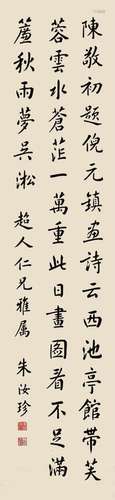 陳敬初題倪元鎮畫詩云西池亭館帶芙
蓉雲水蒼茫一萬重此日畫圖看不足滿
簾秋雨夢吳淞
超人仁兄雅属
朱汝珍